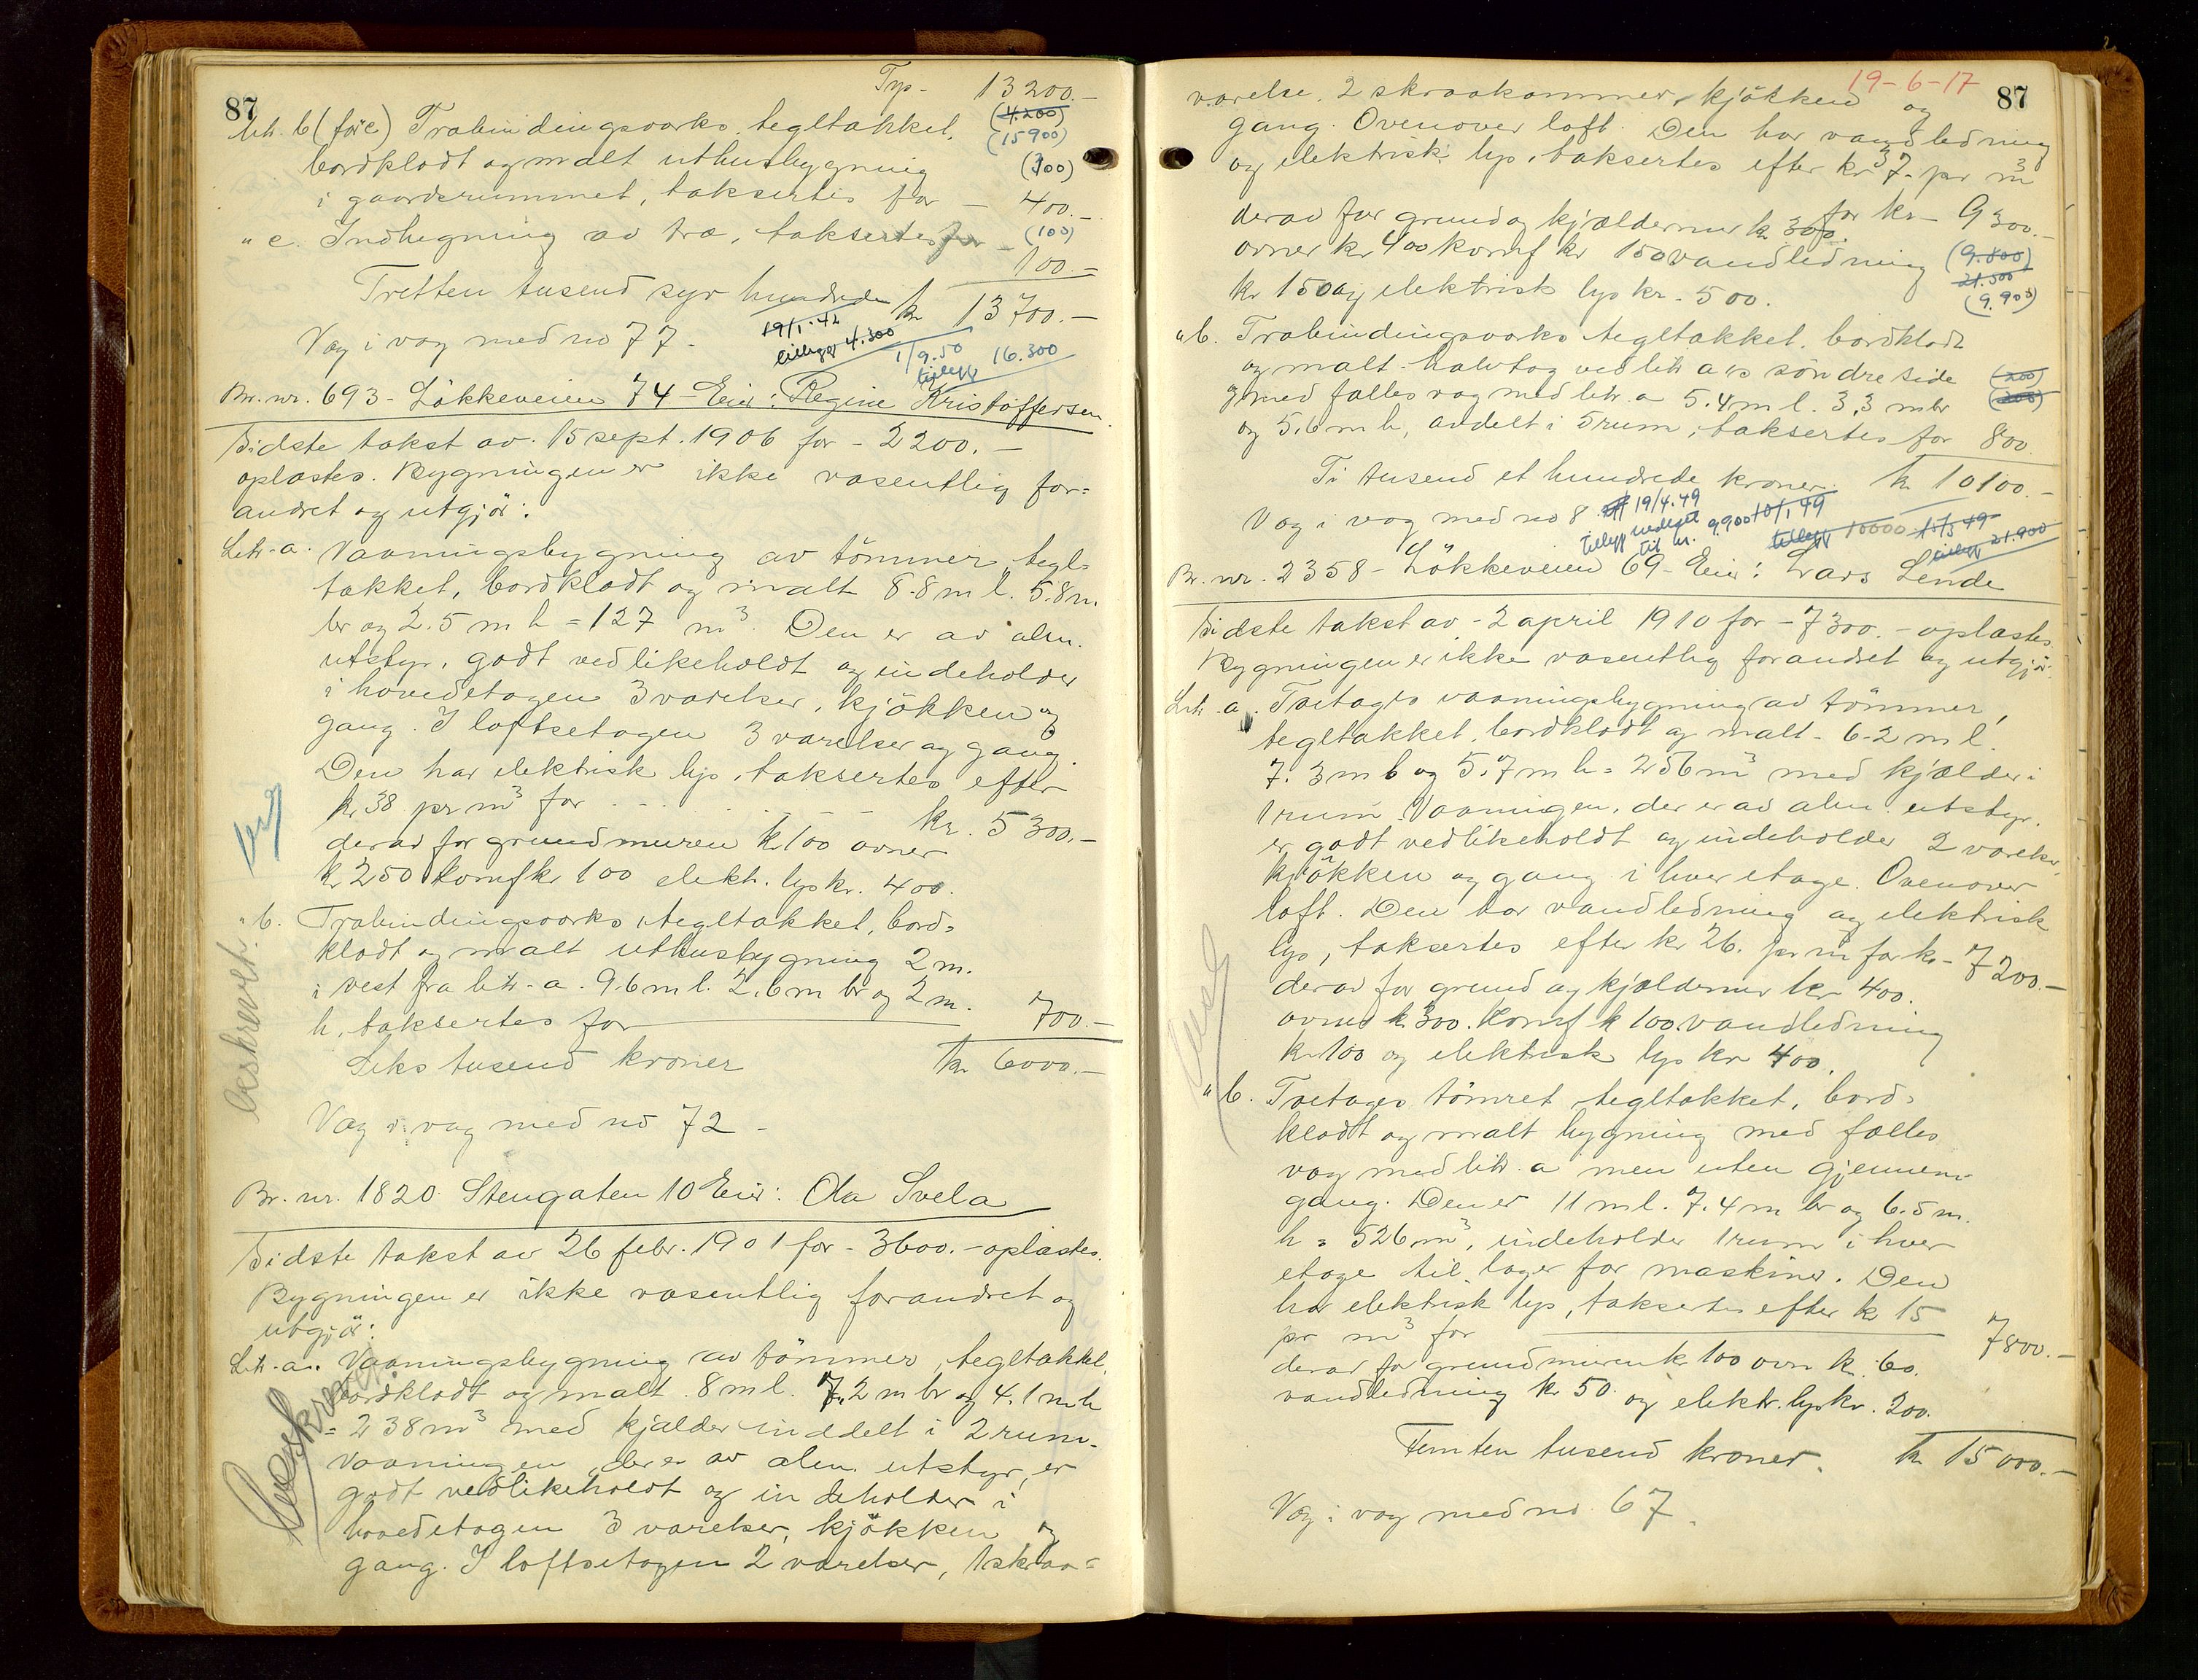 87
Tsp- 13200.-
(4.200)
(15900)
Litr. b (før c) Træbindingsverks, tegltækket,
bordklædt og malt uthusbygning (300)
i gaardsrummet, taksertes for - 400.-
" c. Indhegning av træ, taksertes for - (100)
100.-
Tretten tusend syv hundrede kr 13700.-
Væg i væg med no 77.
19/1.42
tillegg 4.300
1/9.50
tillegg 16.300
Br. nr. 693 - Lökkeveien 74 - Eier: Regine Kristoffersen.
Sidste takst av 15 sept. 1906 for - 2200.-
oplæstes. Bygningen er ikke væsentlig for=
andret og utgjör:
Litr. a. Vaaningsbygning av tömmer, tegl=
tækket, bordklædt og malt 8.8 m l. 5.8 m.
br og 2.5 m h = 127 m³. Den er av alm.
utstyr, godt vedlikeholdt og indeholder
i hovedetagen 3 værelser, kjökken og
gang. I loftsetagen 3 værelser og gang.
Den har elektrisk lys, taksertes efter
kr 38 pr m³ for - - - - kr. 5300.-
derav for grundmuren kr 100 ovner
kr 250 komf kr 100 elektr. lys kr. 400.
" b. Træbindingsverks, tegltækket, bord=
klædt og malt uthusbygning 2 m.
i vest fra litr. a. 9.6 m l. 2.6 m br og 2 m.
h, taksertes for 700.-
Seks tusend kroner kr 6000.-
beskrevet.
Væg i væg med no 72 -
Br. nr. 1820. Stengaten 10 Eier: Ola Svela
Sidste takst av 26 febr. 1901 for - 3600.- oplæstes.
Bygningen er ikke væsentlig forandret og
utgjör:
Litr. a. Vaaningsbygning av tömmer, tegltækket,
bordklædt og malt. 8 m l. 7.2 m br og 4.1 m h
= 238 m³ med kjælder inddelt i 2 rum.
Vaaningen, der er av alm. utstyr, er
godt vedlikeholdt og indeholder i
hovedetagen 3 værelser, kjökken og
gang. I loftsetagen 2 værelser, 1 skraa=
19-6-17 87
værelse, 2 skraakammer, kjökken og
gang. Ovenover loft. Den har vandledning
og elektrisk lys, taksertes efter kr 37.- pr m³
for kr - 9300.-
derav for grund og kjældermur kr 300.
ovner kr 400 komf kr 150 vandledning (9.800)
21.500
kr 150 og elektrisk lys kr - 500. (9.900)
" b. Træbindingsverks tegltækket, bordklædt
og malt halvtag ved litr a's söndre side (200)
og med fælles væg med litr. a 5.4 m l. 3,3 m br (200)
og 5.6 m h, avdelt i 5 rum, taksertes for 800.
Ti tusend et hundrede kroner. kr 10100.-
Væg i væg med no 8.
19/4.49
tillegg nedsatt
til kr. 9.900
10/1 49
tillegg 10000
11/3 49
tillegg 21.900
Br. nr. 2358 - Lökkeveien 69 - Eier: Lars Lende
Sidste takst av - 2 april 1910 for - 7300.- oplæstes.
Bygningen er ikke væsentlig forandret og utgjör:
Litr. a. Toetages vaaningsbygning av tömmer,
tegltækket, bordklædt og malt - 6.2 m l.
7.3 m b og 5.7 m h = 256 m³ med kjælder i
1 rum. Vaaningen, der er av alm. utstyr,
er godt vedlikeholdt og indeholder 2 værelser,
kjökken og gang i hver etage. Ovenover
loft. Den har vandledning og elektrisk
lys, taksertes efter kr 26. pr m³ for kr - 7200.-
derav for grund og kjældermur kr 400.
ovner kr 300. Komf kr 100. vandledning
kr 100 og elektrisk lys kr 400.
" b. Toetages tömret tegltækket, bord=
klædt og malt bygning med fælles
væg med litr. a men uten gjennem=
gang. Den er 11 m l. 7.4 m br og 6.5 m.
h = 526 m³, indeholder 1 rum i hver
etage til lager for maskiner. Den
har elektrisk lys, taksertes efter kr 15
pr m³ for 7800.-
derav for grundmuren kr 100 ovn kr. 60.
vandledning kr 50. og elektr. lys kr. 200.
Femten tusend kroner. kr 15000.-
Væg i væg med no. 67.